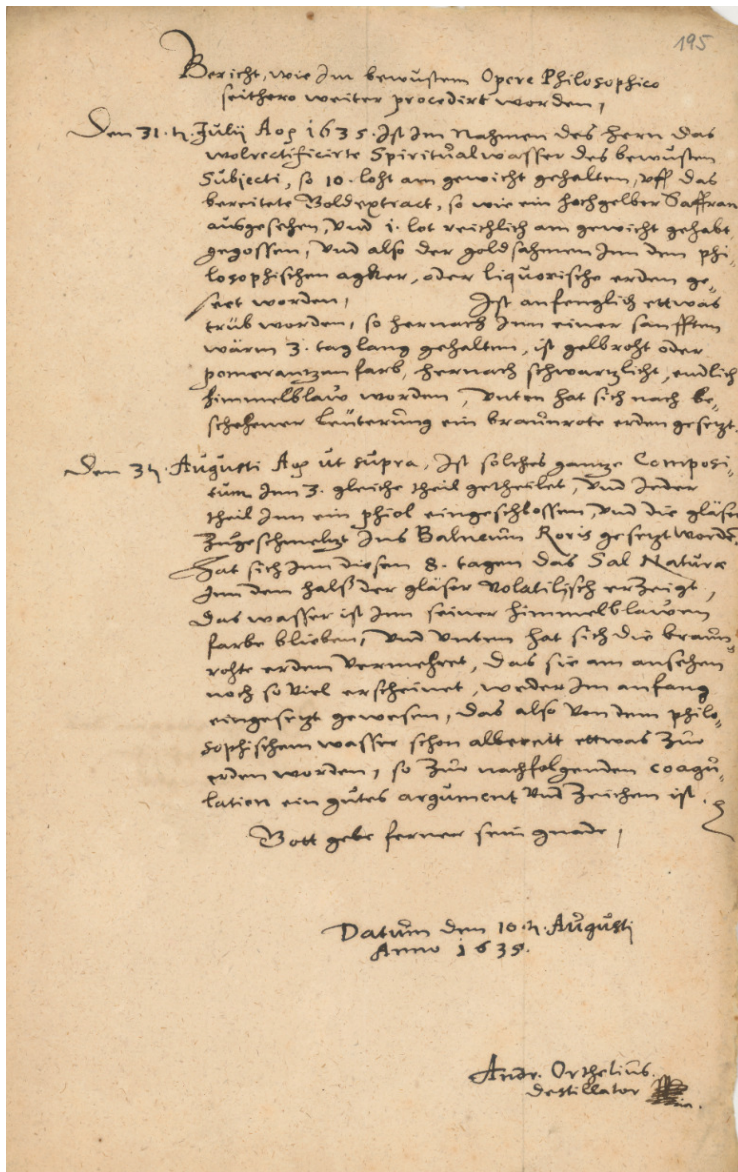 195
Bericht, wie Im bewusten Opere Philosophico
seithero weiter procedirt worden,
Den 31.ᵗⁿ. Julij Aᵒ 1635. Ist Im Nahmen des hern das
wolrectificirte Spiritualwasser des bewusten
Subjecti, so 10. loht am gewicht gehalten, uff das
bereitete Goldextract, so wie ein hochgelber Saffran
ausgesehen, und 1. lot reichlich am gewicht gehabt,
gegossen, und also der goldsahmen Inn den phi„
losophischen agker, oder liquorische erden ge„
seet worden, Ist anfenglich ettwas
trüb worden, so hernach Inn einer sanfften
wärm 3. tag lang gehalten, ist gelbroht oder
pomerantzen farb, hernach schwartzlicht, endlich
himmelblaw worden, unten hat sich nach be„
schehener Leuterung ein braunrote erden gesetzt.
Den 3ᵗⁿ. Augusti Aᵒ ut supra, Ist solches gantze Composi„
tum Inn 3. gleiche theil getheilet, und Jeder
theil Inn ein phiol eingeschlossen, und die gläser
zugeschmeltzt Ins Balneum Roris gesetzt worden,
hat sich Inn diesen 8. tagen das Sal Naturæ
Inn dem halß der gläser volatilisch erzeigt,
das wasser ist Inn seiner himmelblawen
farbe blieben, und unten hat sich die braun„
rohte erden vermehret, das sie am ansehen
noch so viel erscheinet, weder Im anfang
eingesetzt gewesen, das also von dem philo„
sophischem wasser schon albereit ettwas zur
erden worden, so zur nachfolgenden coagu„
lation ein gutes argument und zeichen ist.
Gott gebe ferner sein gnade,
Datum den 10.ᵗⁿ. Augusti
Anno 1635.
Andr. Orthelius.
destillator